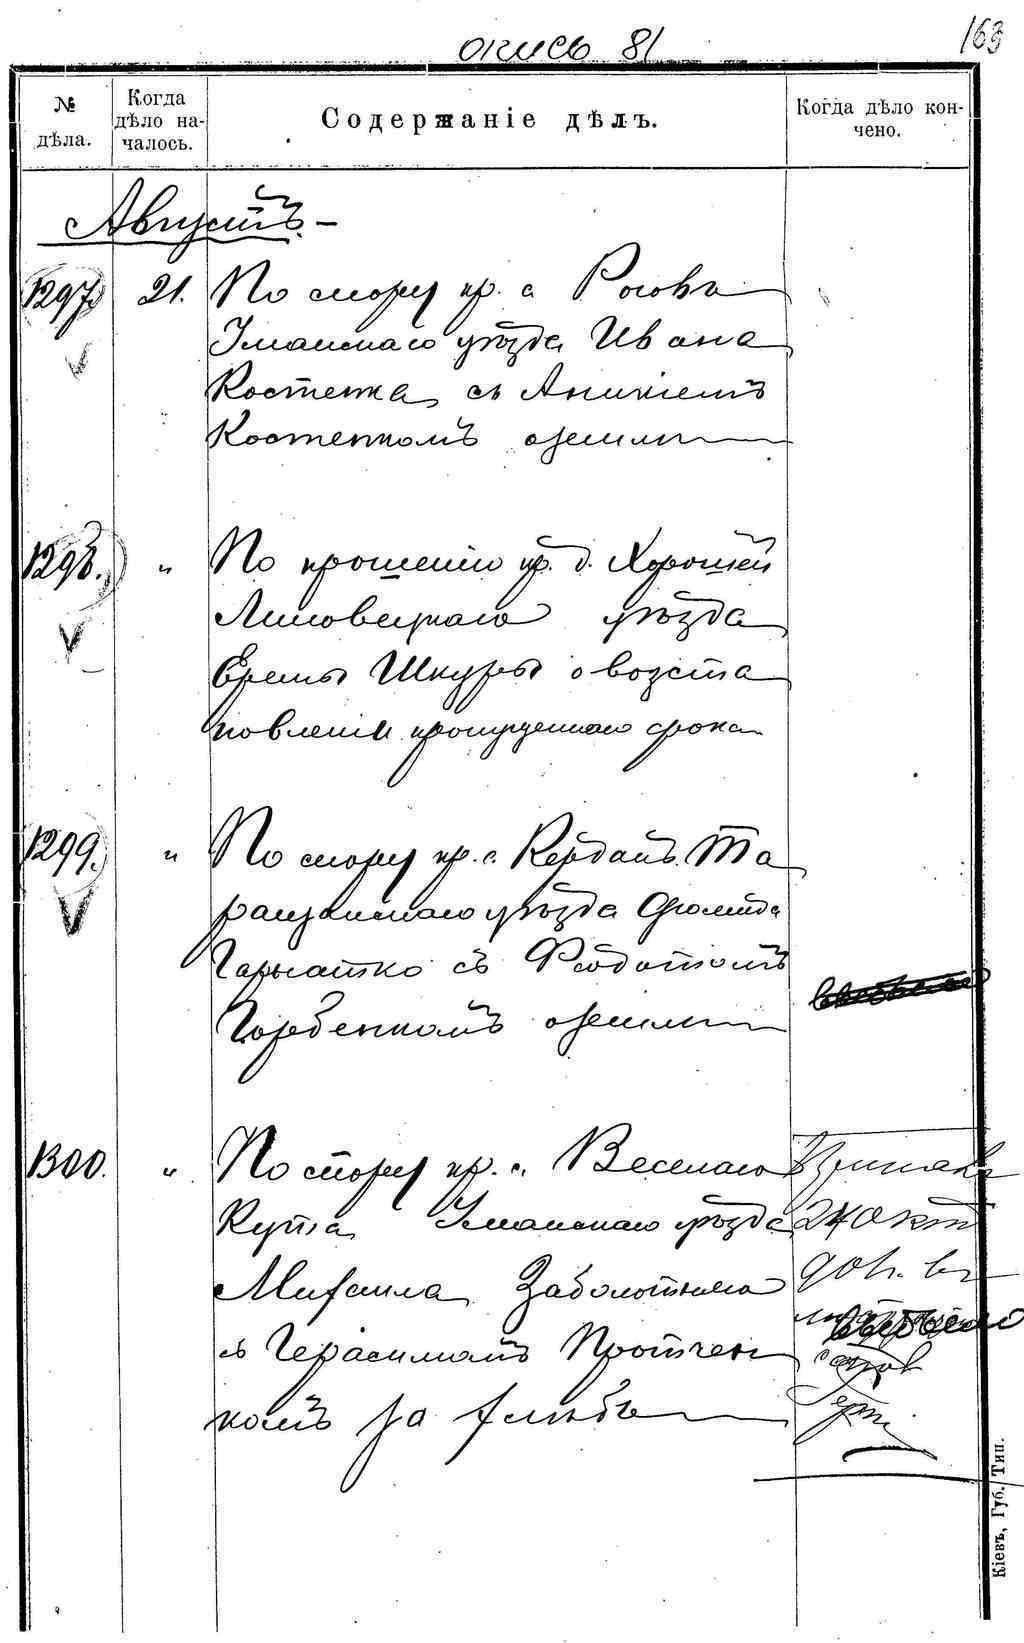 опись 81
163
№ дѣла.
Когда дѣло началось.
Содержаніе дѣлъ.
Когда дѣло кончено.
Августъ. –
1297. 21. По спору кр. с. Роговъ
Уманскаго уѣзда Ивана
Костенка съ Аникіемъ
Костенкомъ о землѣ
1298. " По прошенію кр. д. Хорошей
Липовецкаго уѣзда
Еремы Шкуры о возста
новленіи пропущеннаго срока
1299. " По спору кр. с. Кердановъ Та
ращанскаго уѣзда
съ Федотомъ
Горбенкомъ о землѣ
1300. " По спору кр. с. Веселаго
Кута Уманскаго уѣзда
Михаила Заболотнаго
съ Герасимомъ Протчен
комъ за хлѣбъ
24 Окт
Кіевъ, Губ. Тип.